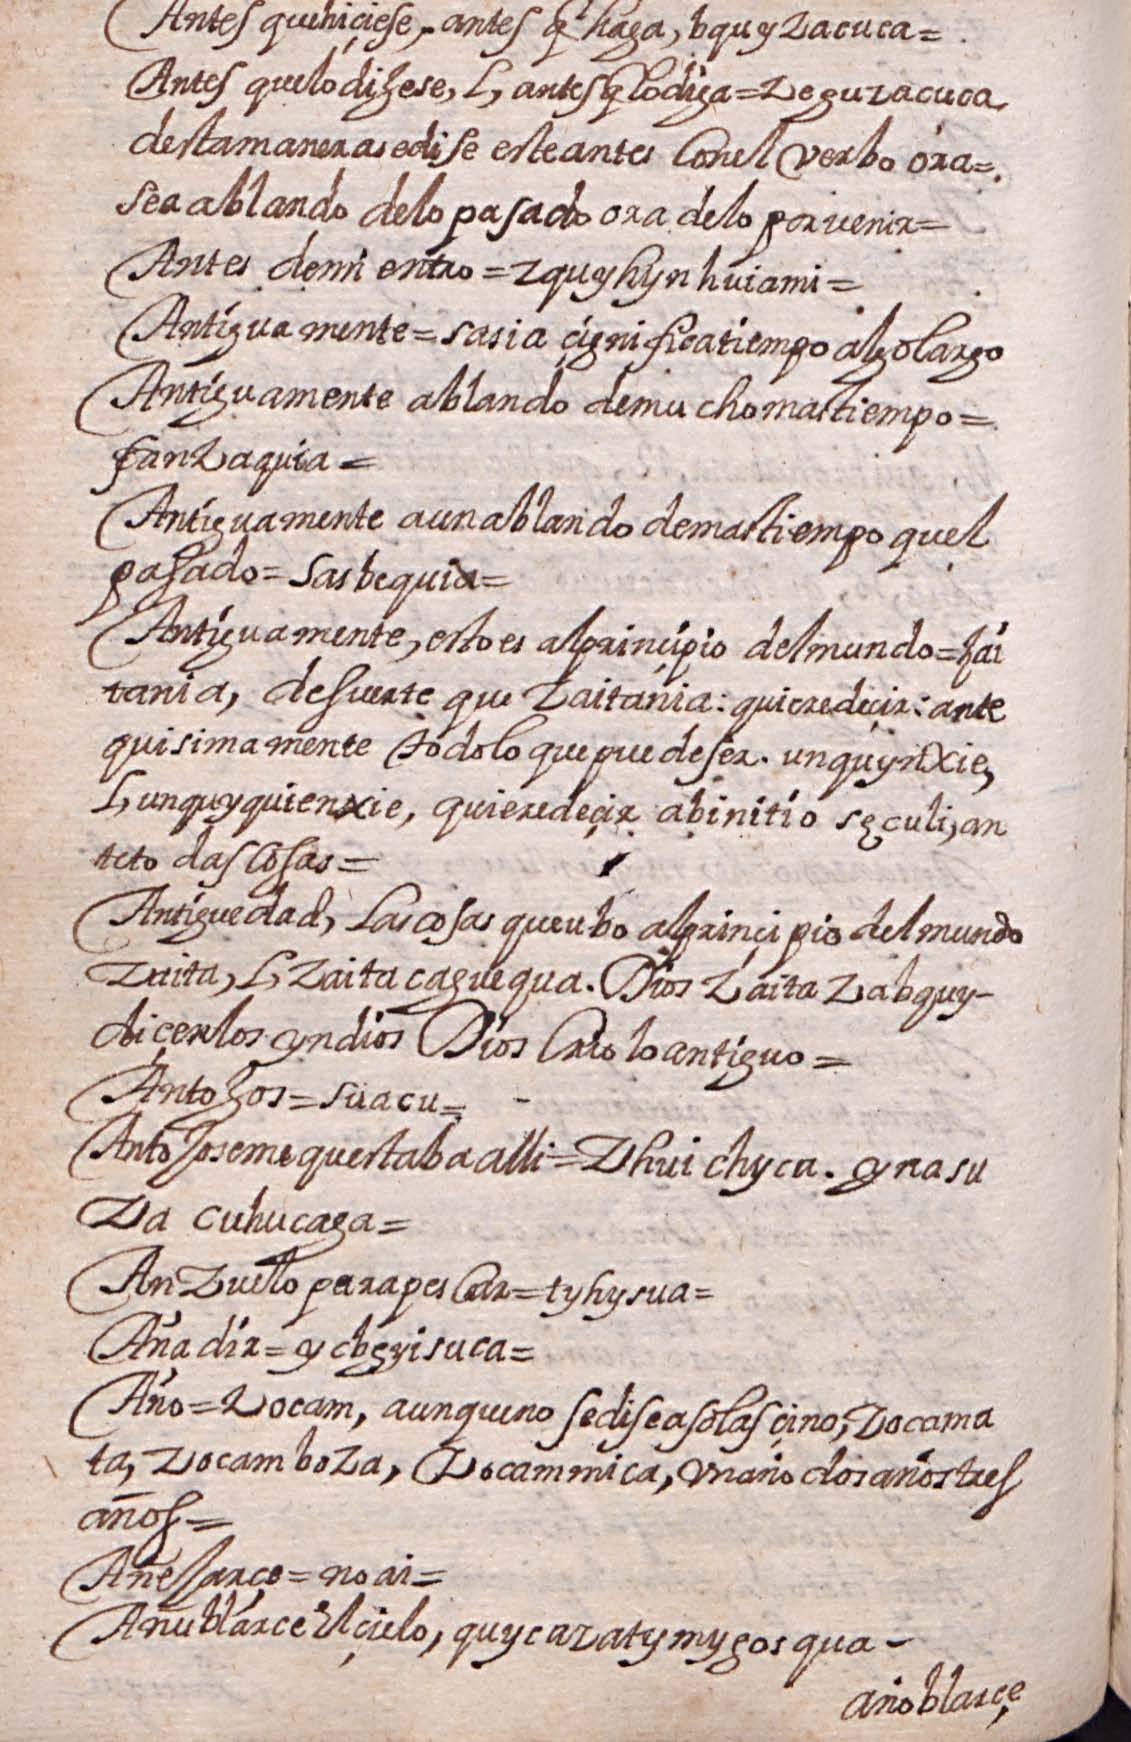 Antes quehiciese, antes q̃ haga, bquyzacuca=
Antes quelodijese, L, antes q̃lodiga=zeguzacuca
destamanerasedise esteantes conel verbo óra=
sea ablando delo pasado ora delo porvenir=
Antes demi entro=zquyhyn huiami=
Antigua mente=sasia çignificatiempo algolargo
Antiguamente ablando demuchomastiempo=
fanzaquia=
Antiguamente aunablando demastiempo quel
pasado=sasbequia=
Antiguamente, estoes alprincipio delmundo=zai
tania, desuerte que zaitania: quieredeçir: ante
quisimamente todoloquepuedeser. unquynxie,
L, unquyquienxie, quieredeçir abinitio sęculi, an
teto dascosas=
Antiguedad, Lascosas queubo alprinçipio delmundo
zaita, L, zaita caguequa. Dios zaita zabquy-
diçenlos yndios Dios crio loantiguo=
Antojos=suacu=
Antojoseme questaba alli=zhui chyca. ynasu
za cuhucaga=
Anzuelo parapescar=tyhysua=
Añadir=ychgyisuca=
Año=zocam, aunqueno sediseasolas çino, zocama
ta, zocamboza, zocammica, vnaño dosaños tres
años=
Añejarçe=noai=
Anublarce El çielo, quycazatymygosqua-
añoblarçe